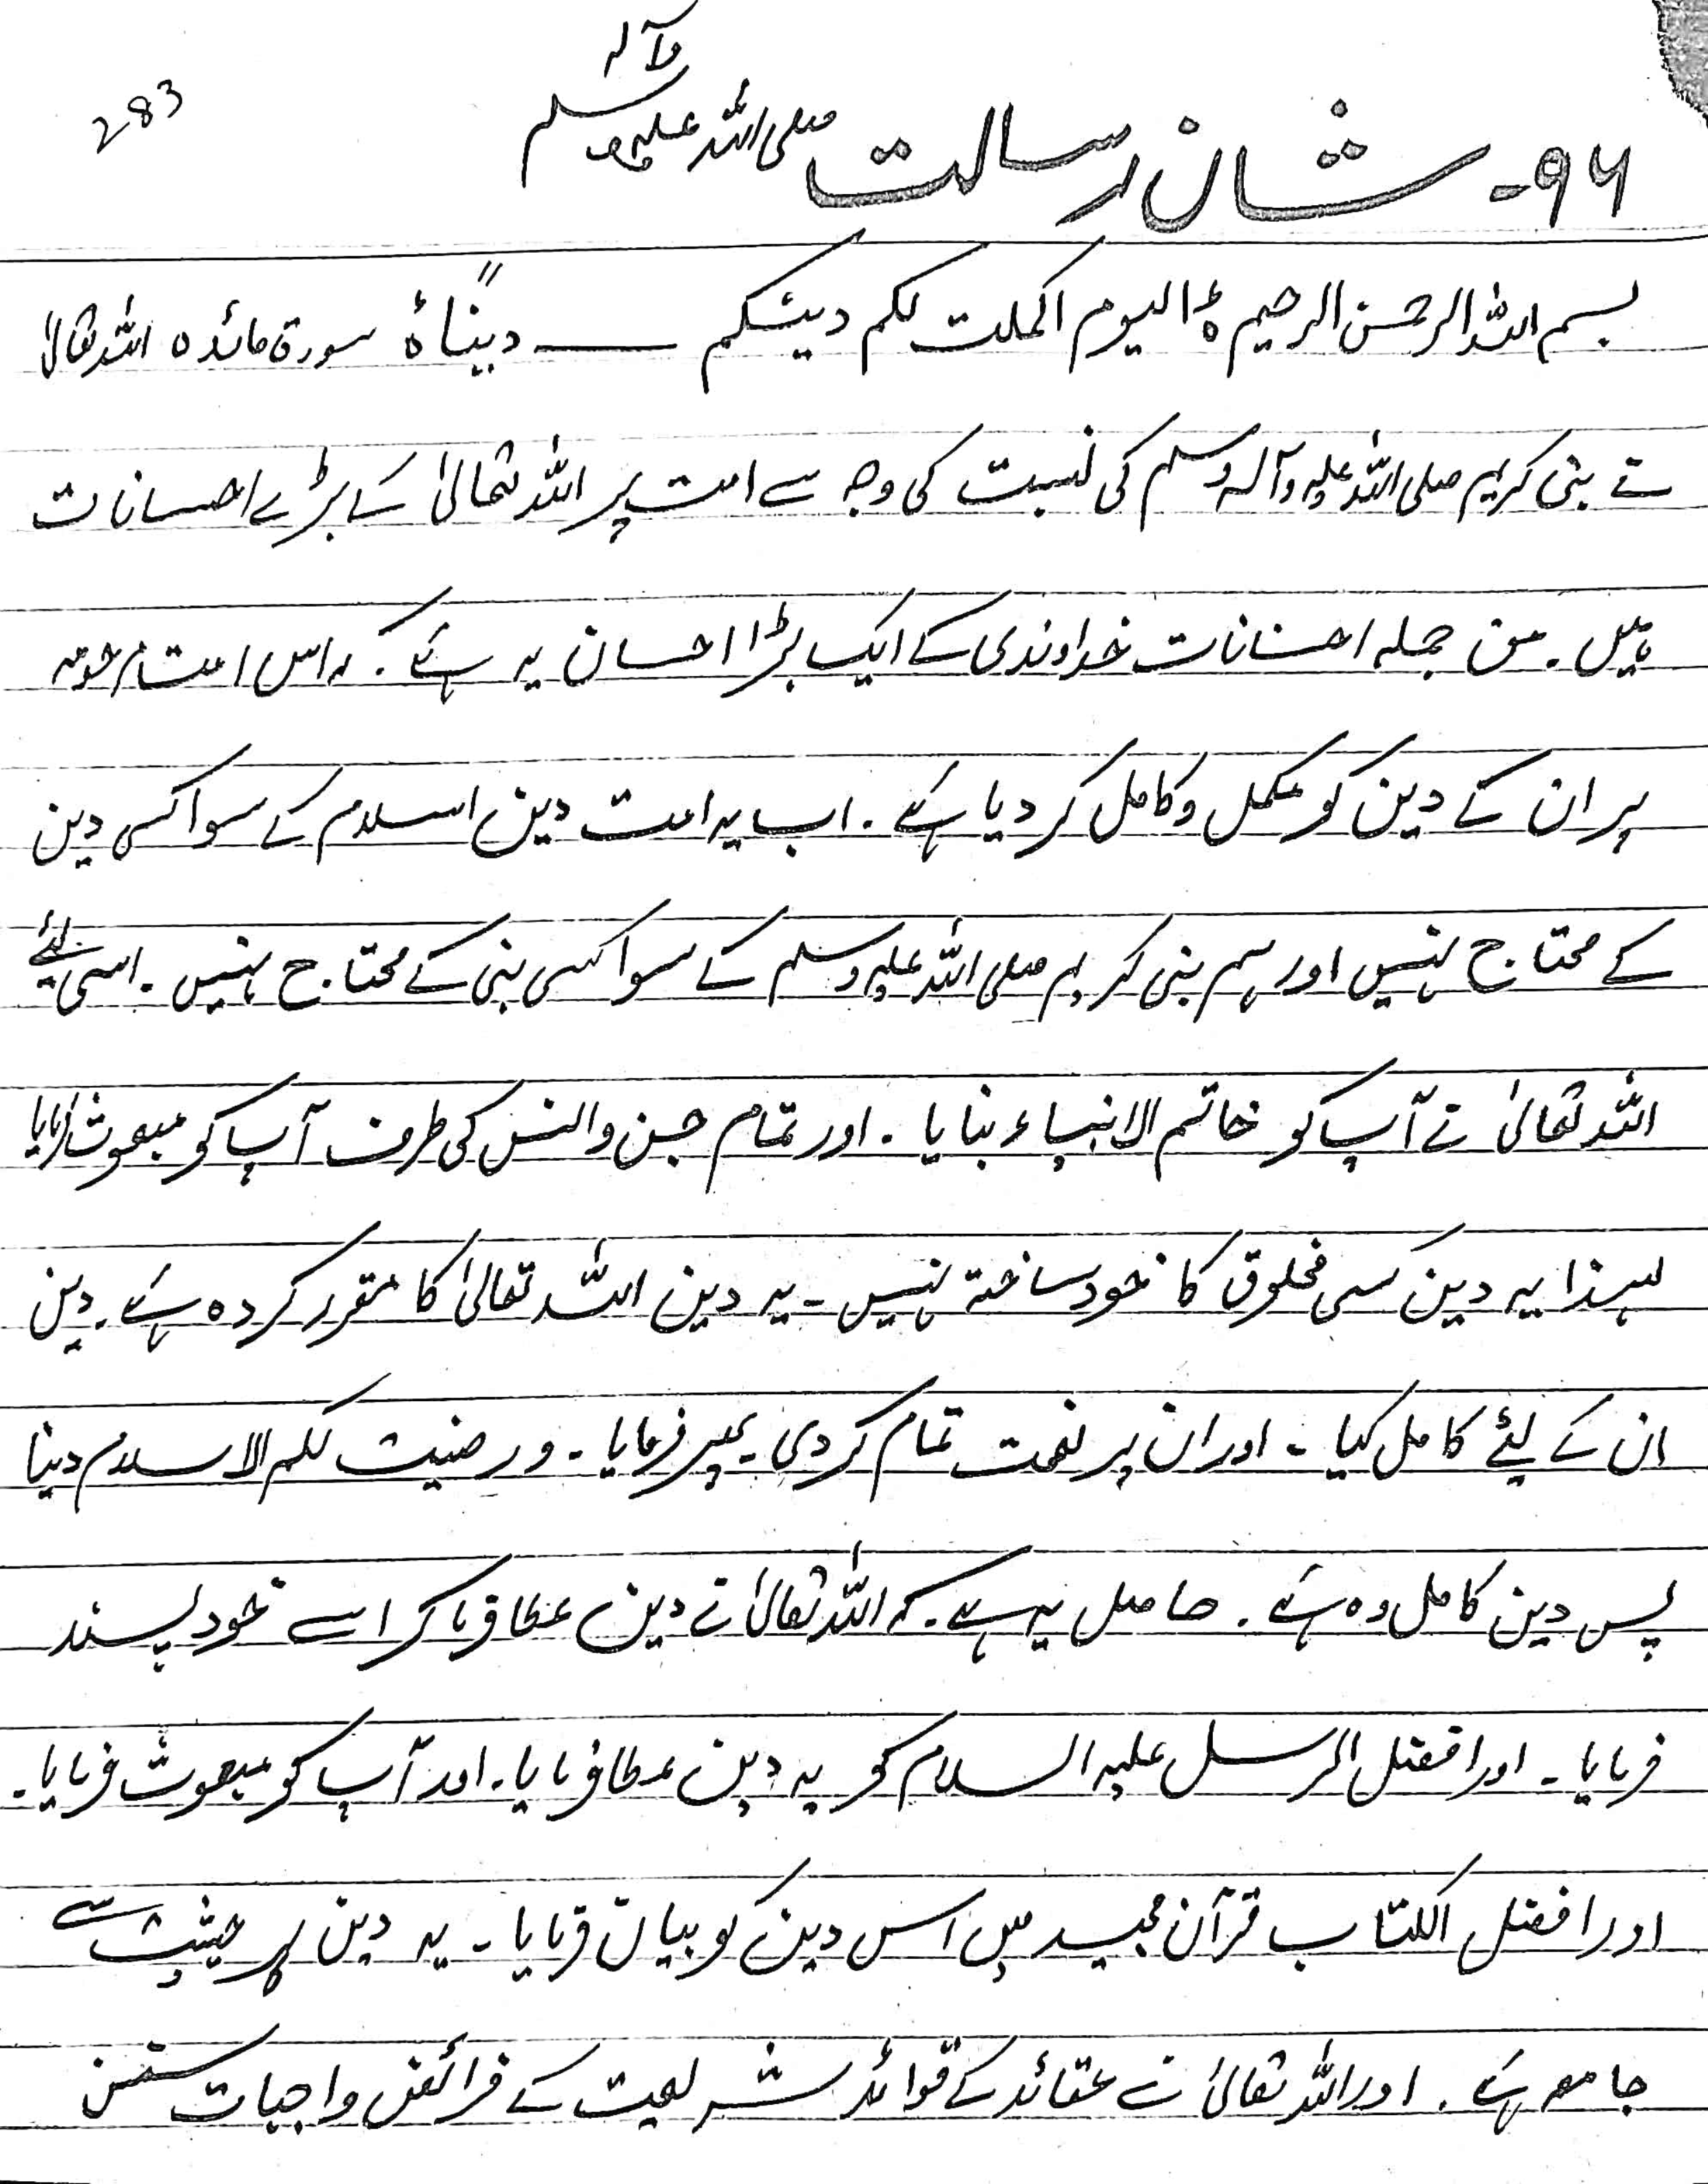 283
۹۶۔ شان رسالت صلی اللہ علیہ وآلہ وسلم
بسم اللہ الرحمن الرحیم ہ الیوم اکملت لکم دینکم ــــــ دیناً ہ سورۃ مائدہ اللہ تعالیٰ
نے نبی کریم صلی اللہ علیہ وآلہ وسلم کی نسبت کی وجہ سے امت پر اللہ تعالیٰ کے بڑے احسانات
ہیں۔ من جملہ احسانات خداوندی کے ایک بڑا احسان یہ ہے۔ کہ اس امت مرحومہ
پر ان کے دین کو مکمل و کامل کر دیا ہے۔ اب یہ امت دین اسلام کے سوا کسی دین
کے محتاج نہیں اور ہم نبی کریم صلی اللہ علیہ وسلم کے سوا کسی نبی کے محتاج نہیں۔ اسی لئے
اللہ تعالیٰ نے آپ کو خاتم الانبیاء بنایا۔ اور تمام جن و انس کی طرف آپ کو مبعوث فرمایا
لہذا یہ دین کسی مخلوق کا خود ساختہ نہیں۔ یہ دین اللہ تعالیٰ کا مقرر کردہ ہے۔ دین
ان کے لئے کامل کیا۔ اور ان پر نعمت تمام کر دی۔ پھر فرمایا۔ ورضیت لکم الاسلام دینا
پس دین کامل وہ ہے۔ حاصل یہ ہے۔ کہ اللہ تعالیٰ نے دین عطا فرما کر اسے خود پسند
فرمایا۔ اور افضل الرسل علیہ السلام کو یہ دین عطا فرمایا۔ اور آپ کو مبعوث فرمایا۔
اور افضل الکتاب قرآن مجید میں اس دین کو بیان فرمایا۔ یہ دین ہر حیثیت سے
جامع ہے۔ اور اللہ تعالیٰ نے عقائد کے قوائد شریعت کے فرائض واجبات سنن